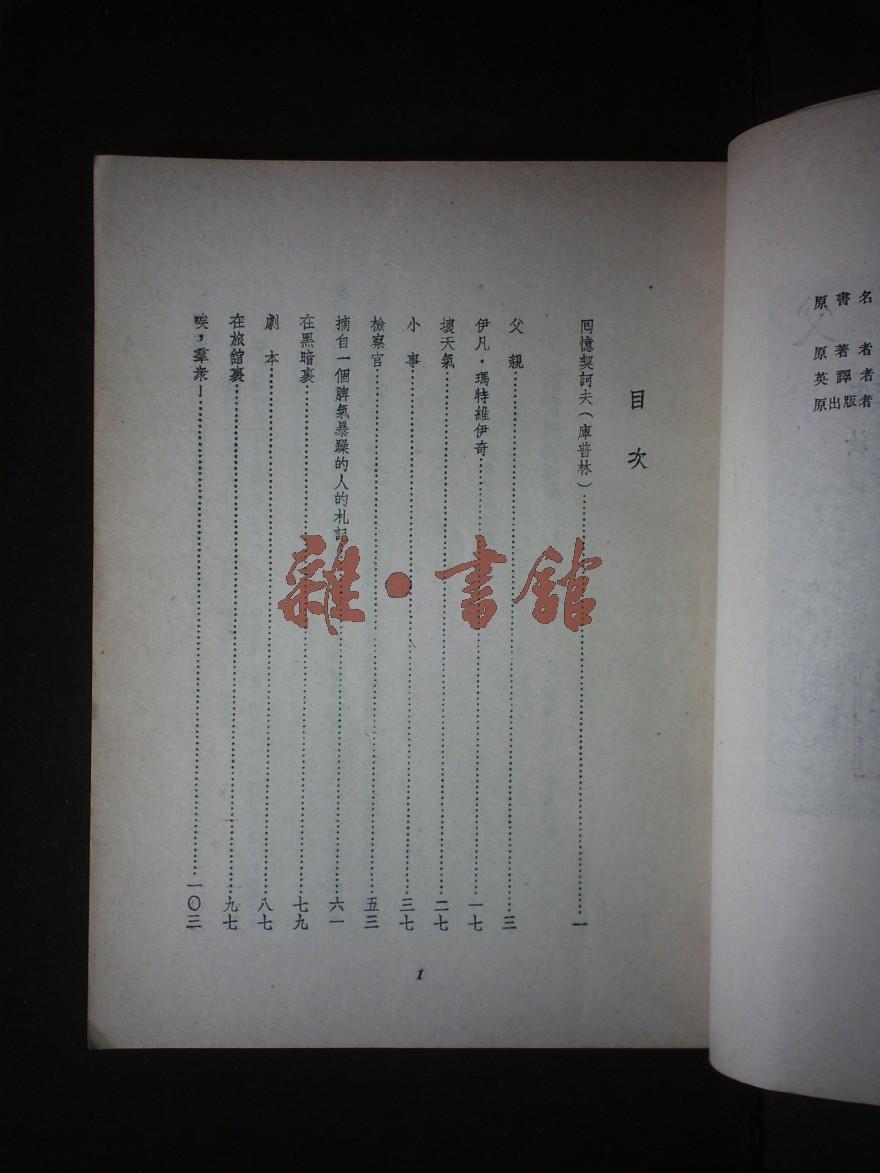 目次
回憶契訶夫(庫普林)……一
父親……三
伊凡·瑪特維伊奇……一七
壞天氣……二七
小事……三七
檢察官……五三
摘自一個脾氣暴躁的人的札記……六一
在黑暗裏……七九
劇本……八七
在旅館裏……九七
唉,羣衆!……一〇三
1
雜·書館
原書名
原著者
英譯者
原出版者